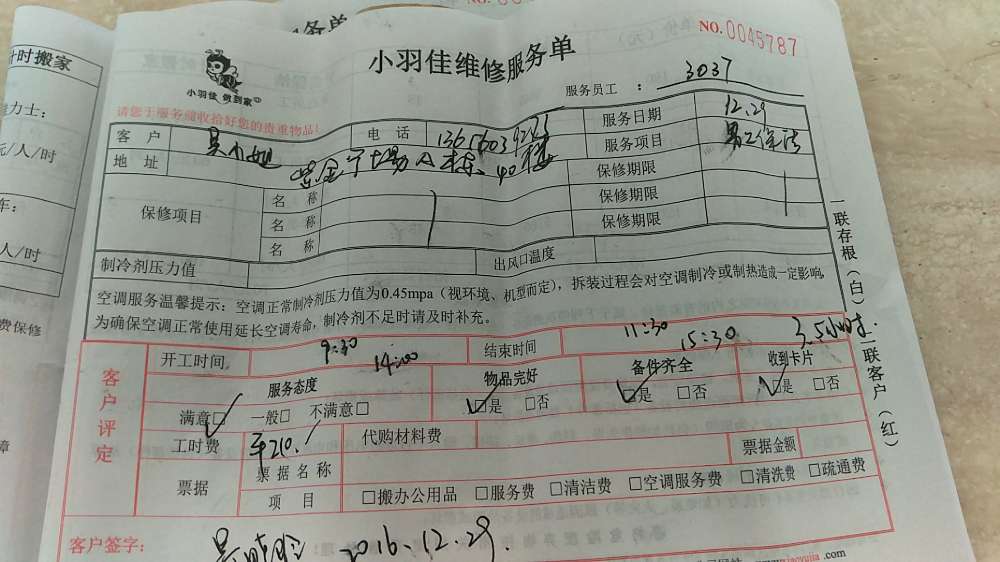 NO.0045787
小羽佳维修服务单
小羽佳 做到家
服务员工 : 3037
请您于服务前收拾好您的贵重物品!
客户 吴小姐 电话 服务日期 12.29
地址 紫金广场A栋.40楼 服务项目
保修项目 名称 保修期限
名称 保修期限
名称 保修期限
制冷剂压力值 出风口温度
空调服务温馨提示：空调正常制冷剂压力值为0.45mpa（视环境、机型而定），拆装过程会对空调制冷或制热造成一定影响。
为确保空调正常使用延长空调寿命，制冷剂不足时请及时补充。
一联存根（白）二联客户（红）
客户评定
开工时间 9:30 14:00 结束时间 11:30 15:30 3.5小时
服务态度 物品完好 备件齐全 收到卡片
满意□ 一般□ 不满意□ □是 □否 □是 □否 □是 □否
工时费 ¥210. 代购材料费
票据 票据名称 票据金额
项目 □搬办公用品 □服务费 □清洁费 □空调服务费 □清洗费 □疏通费
客户签字: 2016.12.29.
.com
时搬家
力士：
元/人/时
车：
人/时
费保修
章
务单